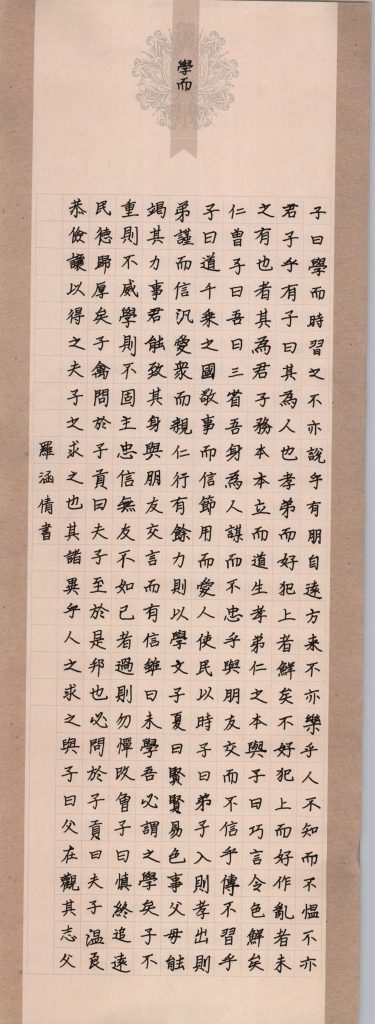 學而
子曰學而時習之不亦說乎有朋自遠方來不亦樂乎人不知而不慍不亦
君子乎有子曰其為人也孝弟而好犯上者鮮矣不好犯上而好作亂者未
之有也者其為君子務本本立而道生孝弟仁之本與子曰巧言令色鮮矣
仁曾子曰吾日三省吾身為人謀而不忠乎與朋友交而不信乎傳不習乎
子曰道千乘之國敬事而信節用而愛人使民以時子曰弟子入則孝出則
弟謹而信汎愛眾而親仁行有餘力則以學文子夏曰賢賢易色事父母能
竭其力事君能致其身與朋友交言而有信雖曰未學吾必謂之學矣子不
重則不威學則不固主忠信無友不如己者過則勿憚改曾子曰慎終追遠
民德歸厚矣子禽問於子貢曰夫子至於是邦也必問於子貢曰夫子溫良
恭儉讓以得之夫子之求之也其諸異乎人之求之與子曰父在觀其志父
羅涵倩書